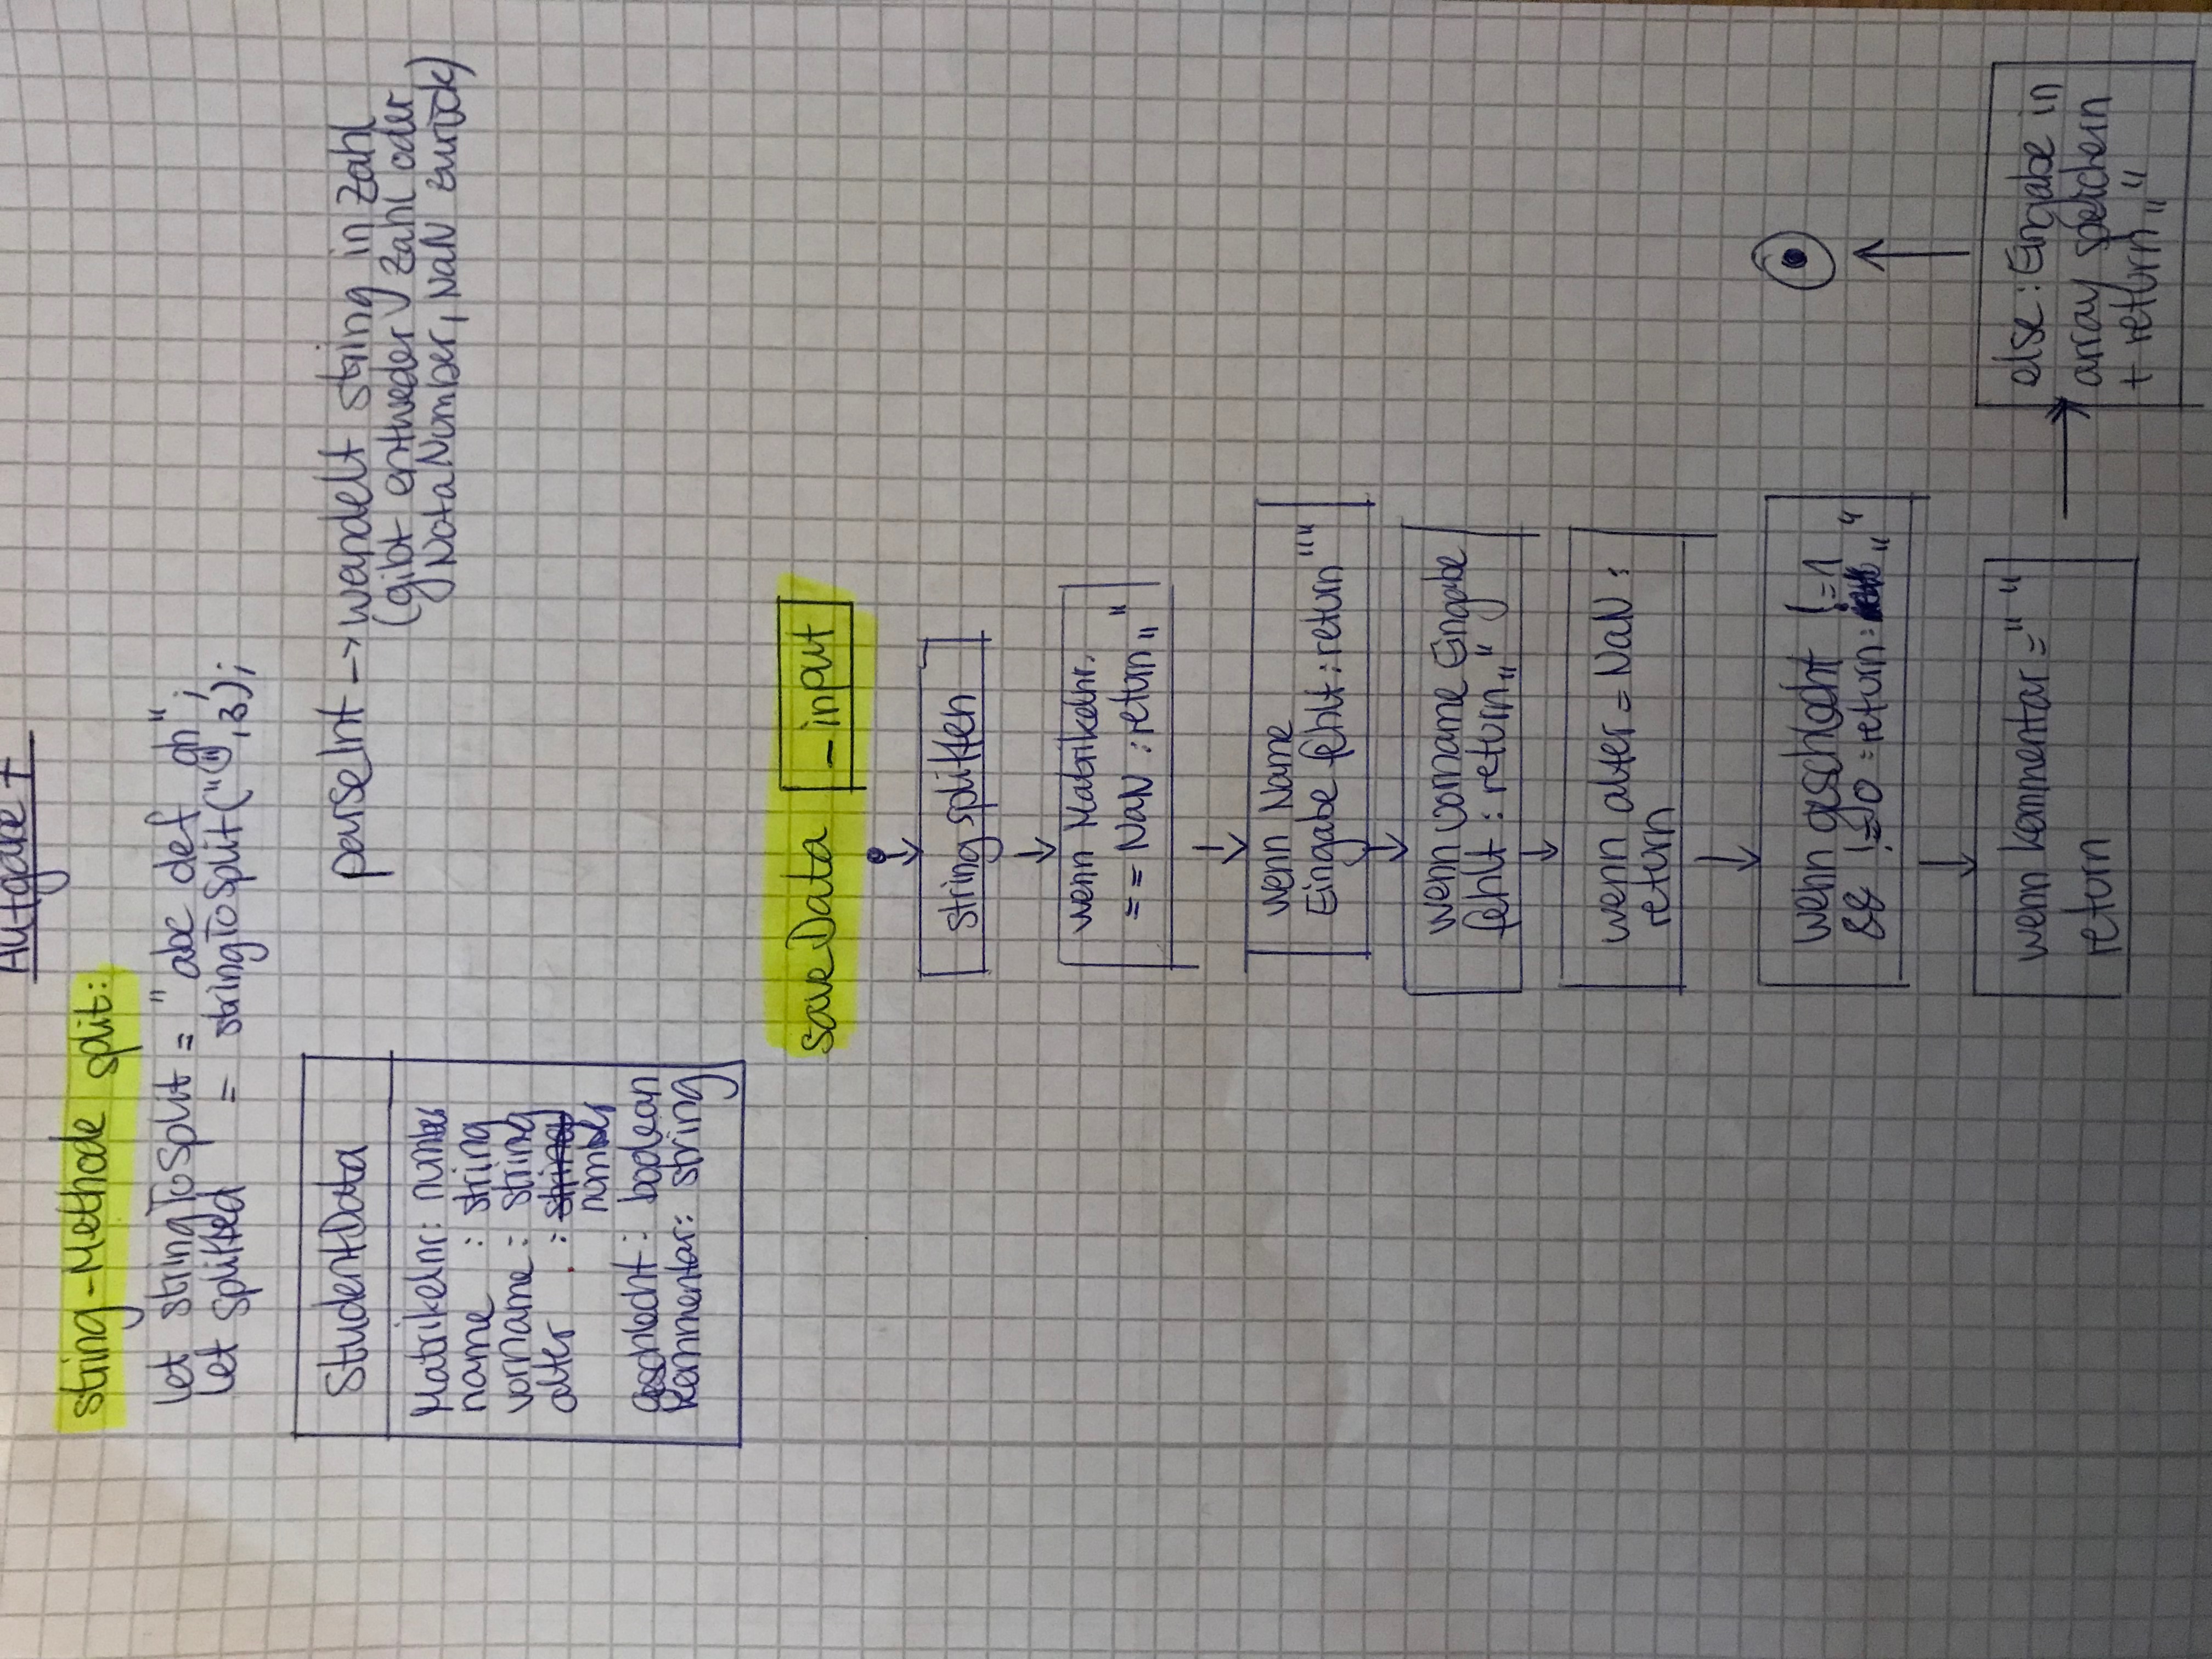 string-Methode split:
let stringToSplit = "abc def gh";
let splitted = stringToSplit(" ",3);
StudentData
Matrikelnr: number
name : string
vorname : string
alter : string
number
geschlecht: boolean
Kommentar: string
parseInt -> wandelt string in Zahl
(gibt entweder Zahl oder
NotaNumber, NaN zurück)
saveData _input
string splitten
wenn Matrikelnr.
== NaN : return „“
wenn Name
Eingabe fehlt : return ""
wenn Vorname Eingabe
fehlt : return „“
wenn alter = NaN :
return
wenn geschlecht != 1
&& != 0 : return : „“
wenn kommentar = " "
return
else : Eingabe in
array speichern
+ return „“